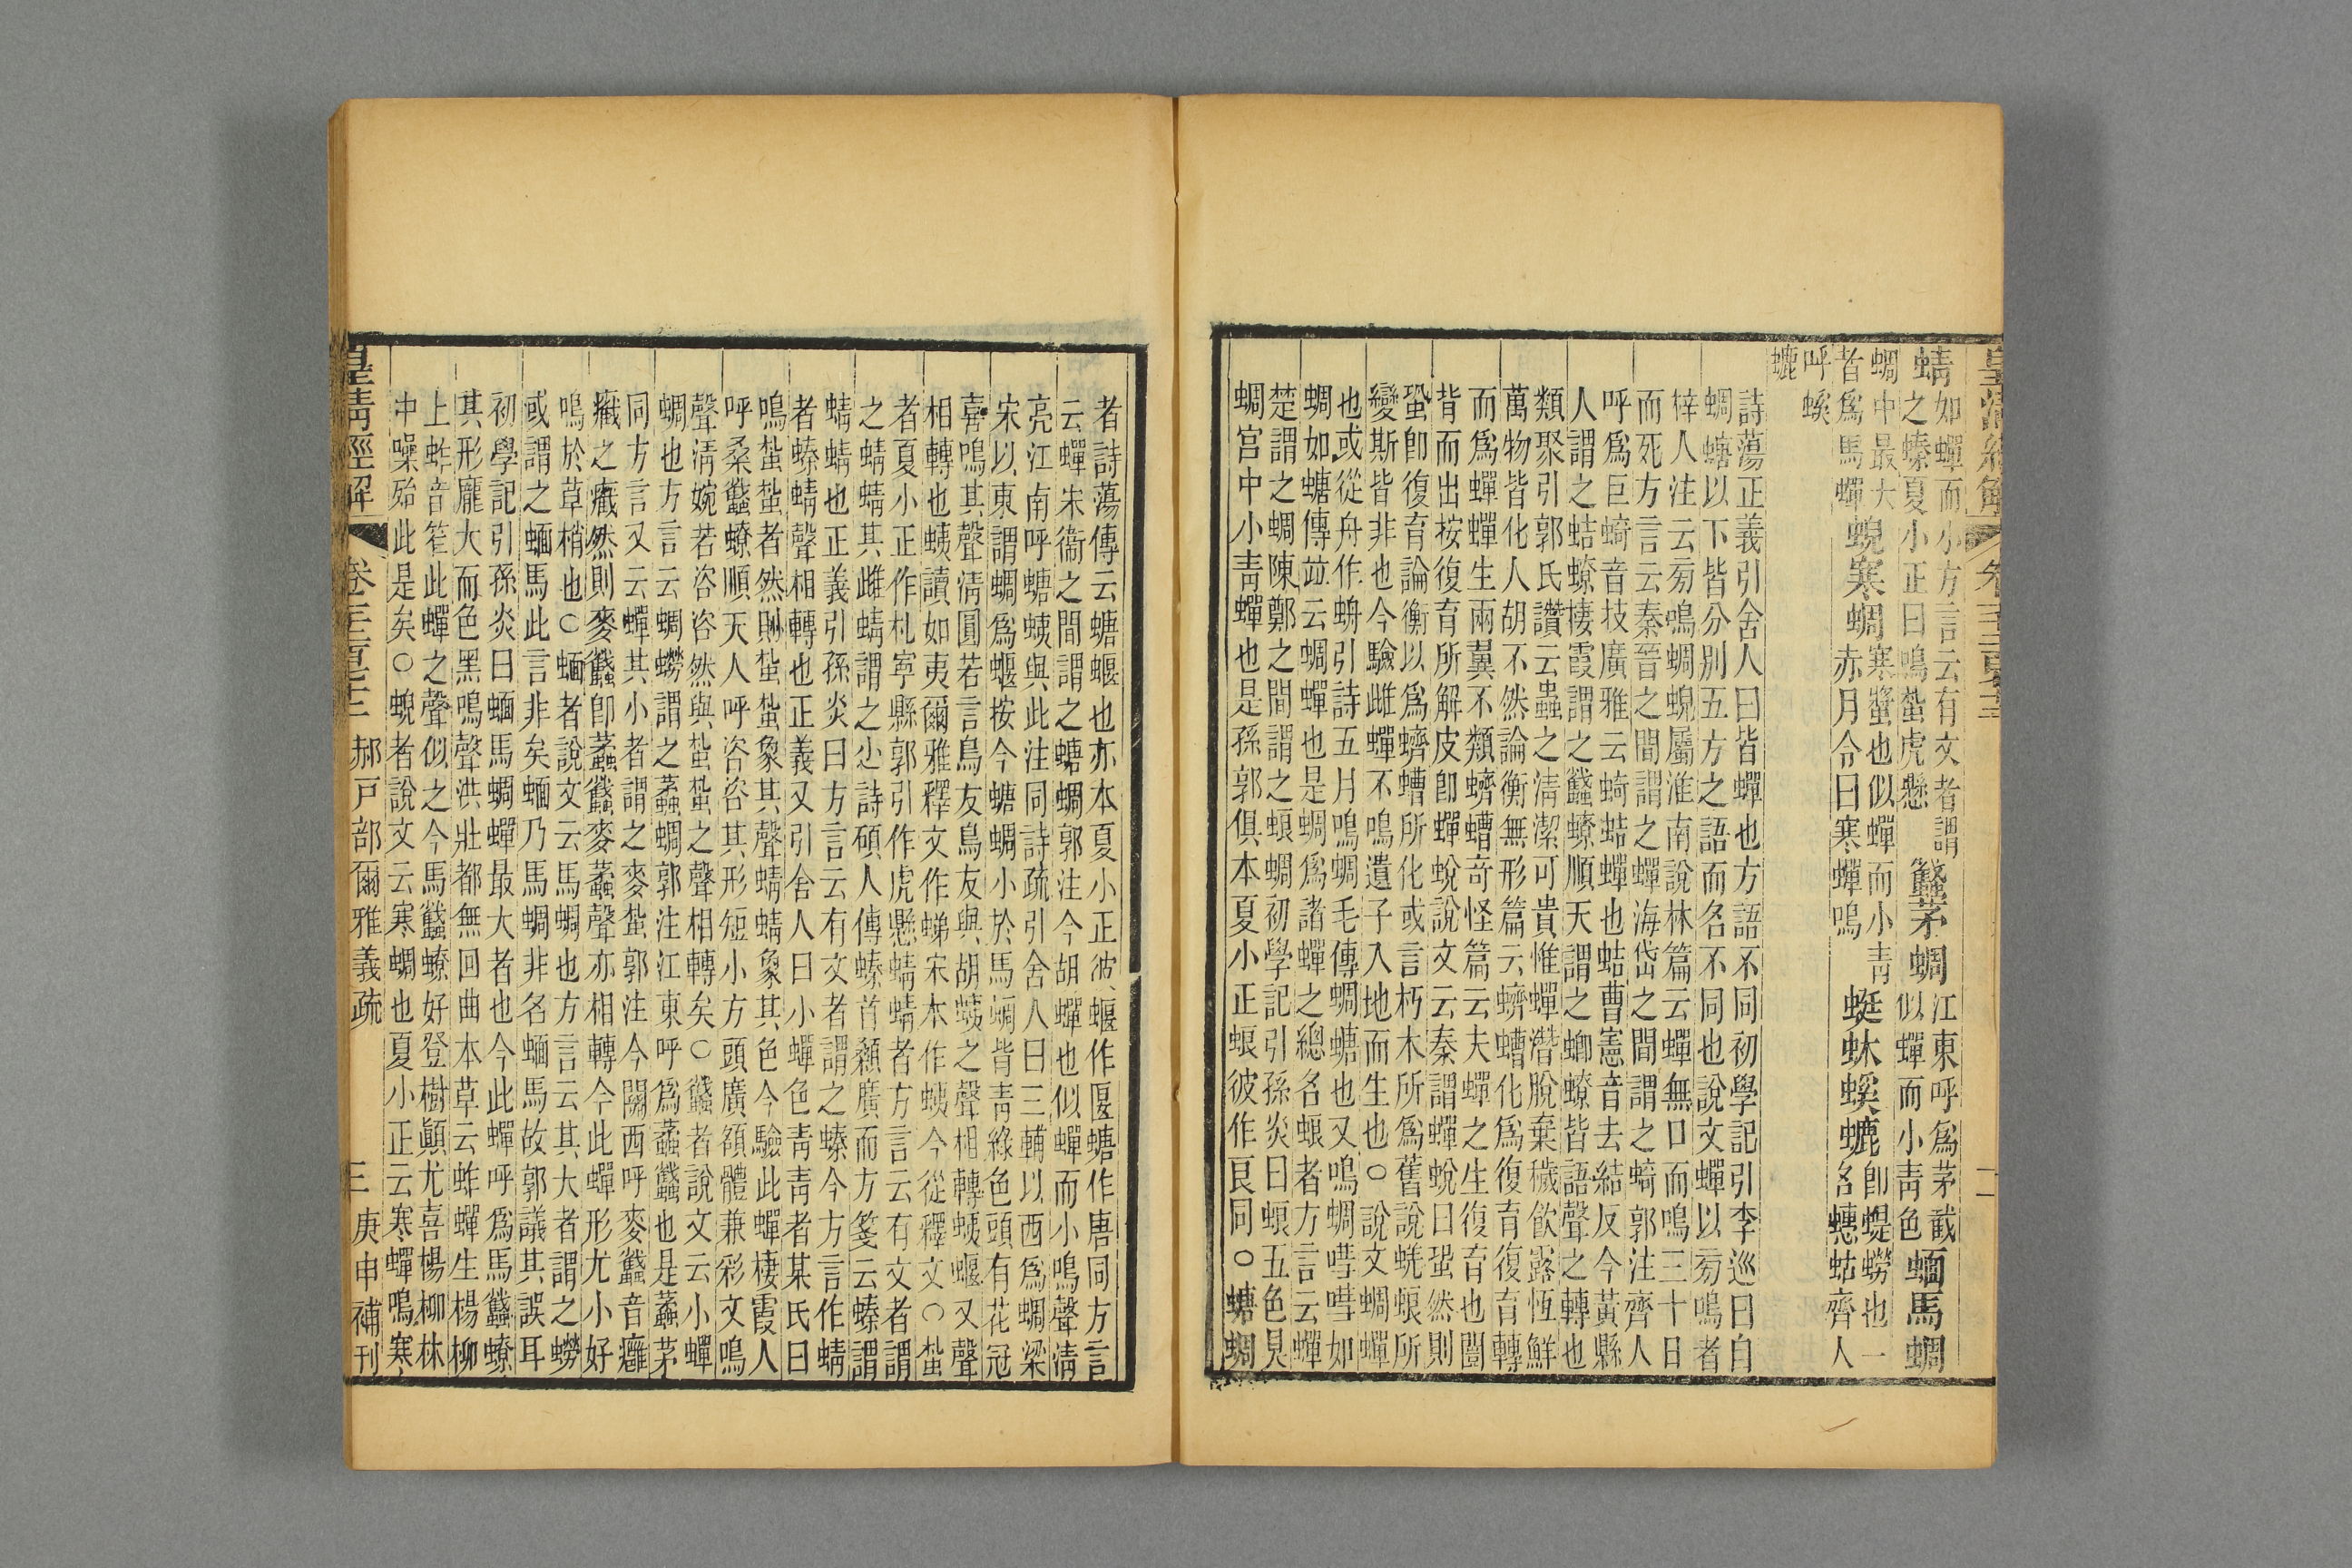 皇清經解
蜻
如蟬而小方言云有文者謂
之螓夏小正曰鳴蚻虎懸
蠽茅蜩
江東呼為茅截
似蟬而小青色
蝒馬蜩
蜩中最大
者為馬蟬
蜺寒蜩
寒螿也似蟬而小青
赤月令曰寒蟬鳴
蜓蚞螇螰
卽蝭蟧也一
名蟪蛄齊人
呼螇
螰
詩蕩正義引舍人曰皆蟬也方語不同初學記引李巡曰自
蜩螗以下皆分別五方之語而名不同也說文蟬以㫄鳴者
梓人注云㫄鳴蜩蜺屬淮南說林篇云蟬無口而鳴三十日
而死方言云秦晉之間謂之蟬海岱之間謂之䗁郭注齊人
呼為巨䗁音技廣雅云䗁蛣蟬也蛣曹憲音去結反今黃縣
人謂之蛣蟟棲霞謂之蠽蟟順天謂之螂蟟皆語聲之轉也
類聚引郭氏讚云蟲之清潔可貴惟蟬潛脫棄穢飲露恆鮮
萬物皆化人胡不然論衡無形篇云蠐螬化為復育復育轉
而為蟬蟬生兩翼不類蠐螬奇怪篇云夫蟬之生復育也闓
背而出按復育所解皮卽蟬蛻說文云秦謂蟬蛻曰蛩然則
蛩卽復育論衡以為蠐螬所化或言朽木所為舊說蜣蜋所
變斯皆非也今驗雌蟬不鳴遺子入地而生也○說文蜩蟬
也或從舟作䖠引詩五月鳴蜩毛傳蜩螗也又鳴蜩嘒嘒如
蜩如螗傳竝云蜩蟬也是蜩為諸蟬之總名蜋者方言云蟬
楚謂之蜩陳鄭之間謂之蜋蜩初學記引孫炎曰蜋五色具
蜩宮中小青蟬也是孫郭俱本夏小正蜋彼作良同○螗蜩
者詩蕩傳云螗蝘也亦本夏小正彼蝘作匽螗作唐同方言
云蟬宋衞之間謂之螗蜩郭注今胡蟬也似蟬而小鳴聲清
亮江南呼螗蛦與此注同詩疏引舍人曰三輔以西為蜩梁
宋以東謂蜩為蝘按今螗蜩小於馬蜩皆青綠色頭有花冠
喜鳴其聲清圓若言烏友烏友與胡蛦之聲相轉蛦蝘又聲
相轉也蛦讀如夷爾雅釋文作蝭宋本作蛦今從釋文○蚻
者夏小正作札寧縣郭引作虎懸蜻蜻者方言云有文者謂
之蜻蜻其雌蜻謂之尐詩碩人傳螓首顙廣而方箋云螓謂
蜻蜻也正義引孫炎曰方言云有文者謂之螓今方言作蜻
者螓蜻聲相轉也正義又引舍人曰小蟬色青青者某氏曰
鳴蚻蚻者然則蚻蚻象其聲蜻蜻象其色今驗此蟬棲霞人
呼桑蠽蟟順天人呼咨咨其形短小方頭廣額體兼彩文鳴
聲清婉若咨咨然與蚻蚻之聲相轉矣○蠽者說文云小蟬
蜩也方言云蜩蟧謂之蠚蜩郭注江東呼為蠚蠽也是蠚茅
同方言又云蟬其小者謂之麥蚻郭注今關西呼麥蠽音癰
癤之癤然則麥蠽卽蠚蠽麥蠚聲亦相轉今此蟬形尤小好
鳴於草梢也○蝒者說文云馬蜩也方言云其大者謂之蟧
或謂之蝒馬此言非矣蝒乃馬蜩非名蝒馬故郭議其誤耳
初學記引孫炎曰蝒馬蜩蟬最大者也今此蟬呼為馬蠽蟟
其形龐大而色黑鳴聲洪壯都無回曲本草云蚱蟬生楊柳
上蚱音笮此蟬之聲似之今馬蠽蟟好登樹顚尤喜楊柳林
中噪殆此是矣○蜺者說文云寒蜩也夏小正云寒蟬鳴寒
皇清經解
郝戶部爾雅義疏
三
庚申補刊